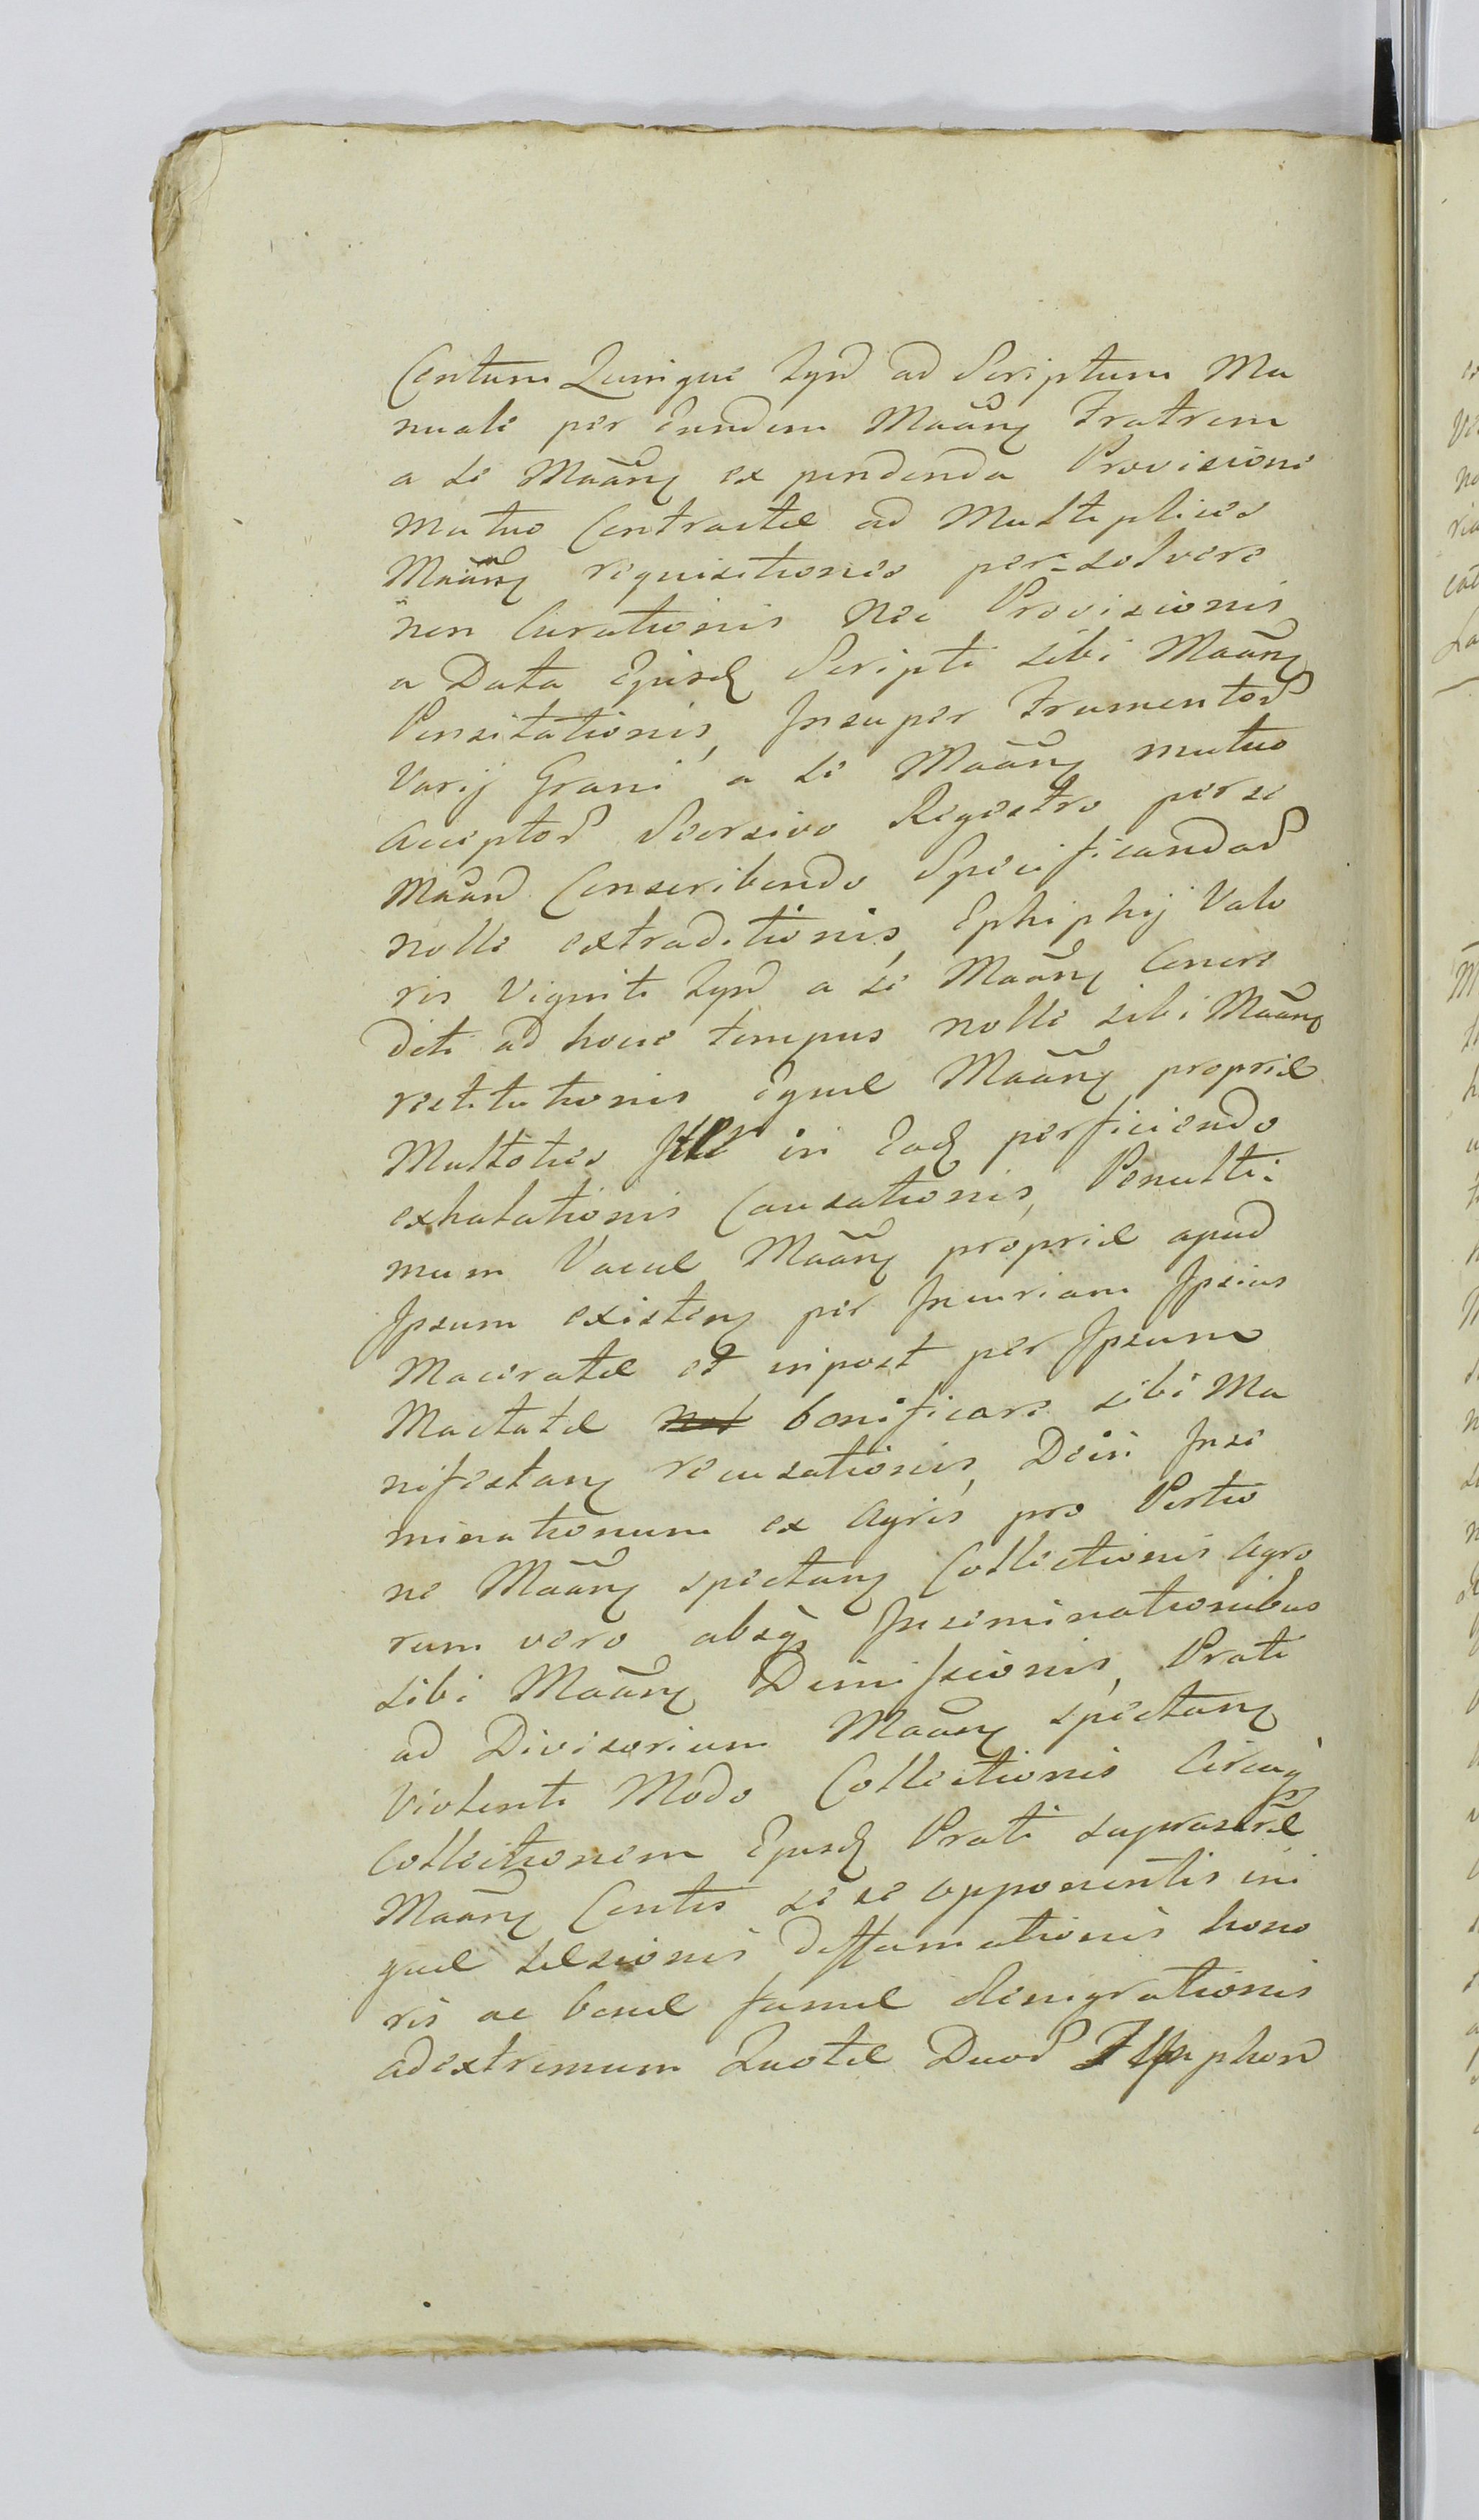 Centum Quinque Tynf ad Scriptum Ma
nuale per Eundem Maãnt Fratrem
a se Maãnt ex pendenda Provisione
Mutuo Contractæ ad Multiplices
Maãnt requisitiones per=solvere
non Curationis nec Provisionis
a Data Ejusd Scripti sibi Maãnt
Pensitationis, Insuper Frumentor
Varij Grani a se Maãnt mutuo
acceptor Seorsivo Regestro per se
Maãnt Conscribendo Specificandor
nolle extraditionis, Ephiphij Valo
ris Viginti Tynf a se Maãnt Concre
diti ad hocce tempus nolle sibi Maãnt
restitutionis Equæ Maãnt propriæ
Multoties in Ead perficiendo
exhalationis Causationis, Penulti:
mum Vaccæ Maãnt propriæ apud
Ipsum existen per Incuriam Ipsius
Maceratæ et inpost per Ipsum
Mactatæ non bonificare sibi Ma
nifestant recusationis, Dein Inse
minationum ex Agris pro Portio
ne Maãnt spectant Collectionis Agro
rum vero absq̀ Inseminationibus
sibi Maãnt Dimissionis, Prati
ad Divisorium Maãnt spectant
Violenti Modo Collectionis Circaq̀
Collectionem Ejusd Prati suprascræ
Maãnt Contis se se opponentis ini
quæ Læsionis Diffamationis hono
ris ac bonæ famæ denigrationis
adextremum Quotæ Duor